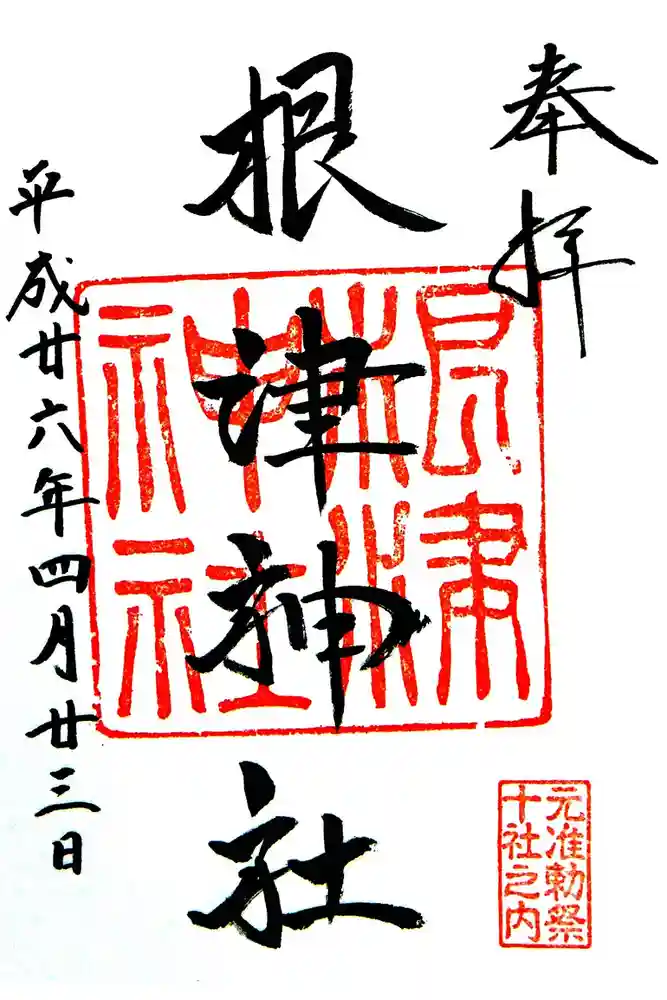 奉拝
根津神社
根津神社
元准勅祭
十社之内
平成廿六年四月廿三日